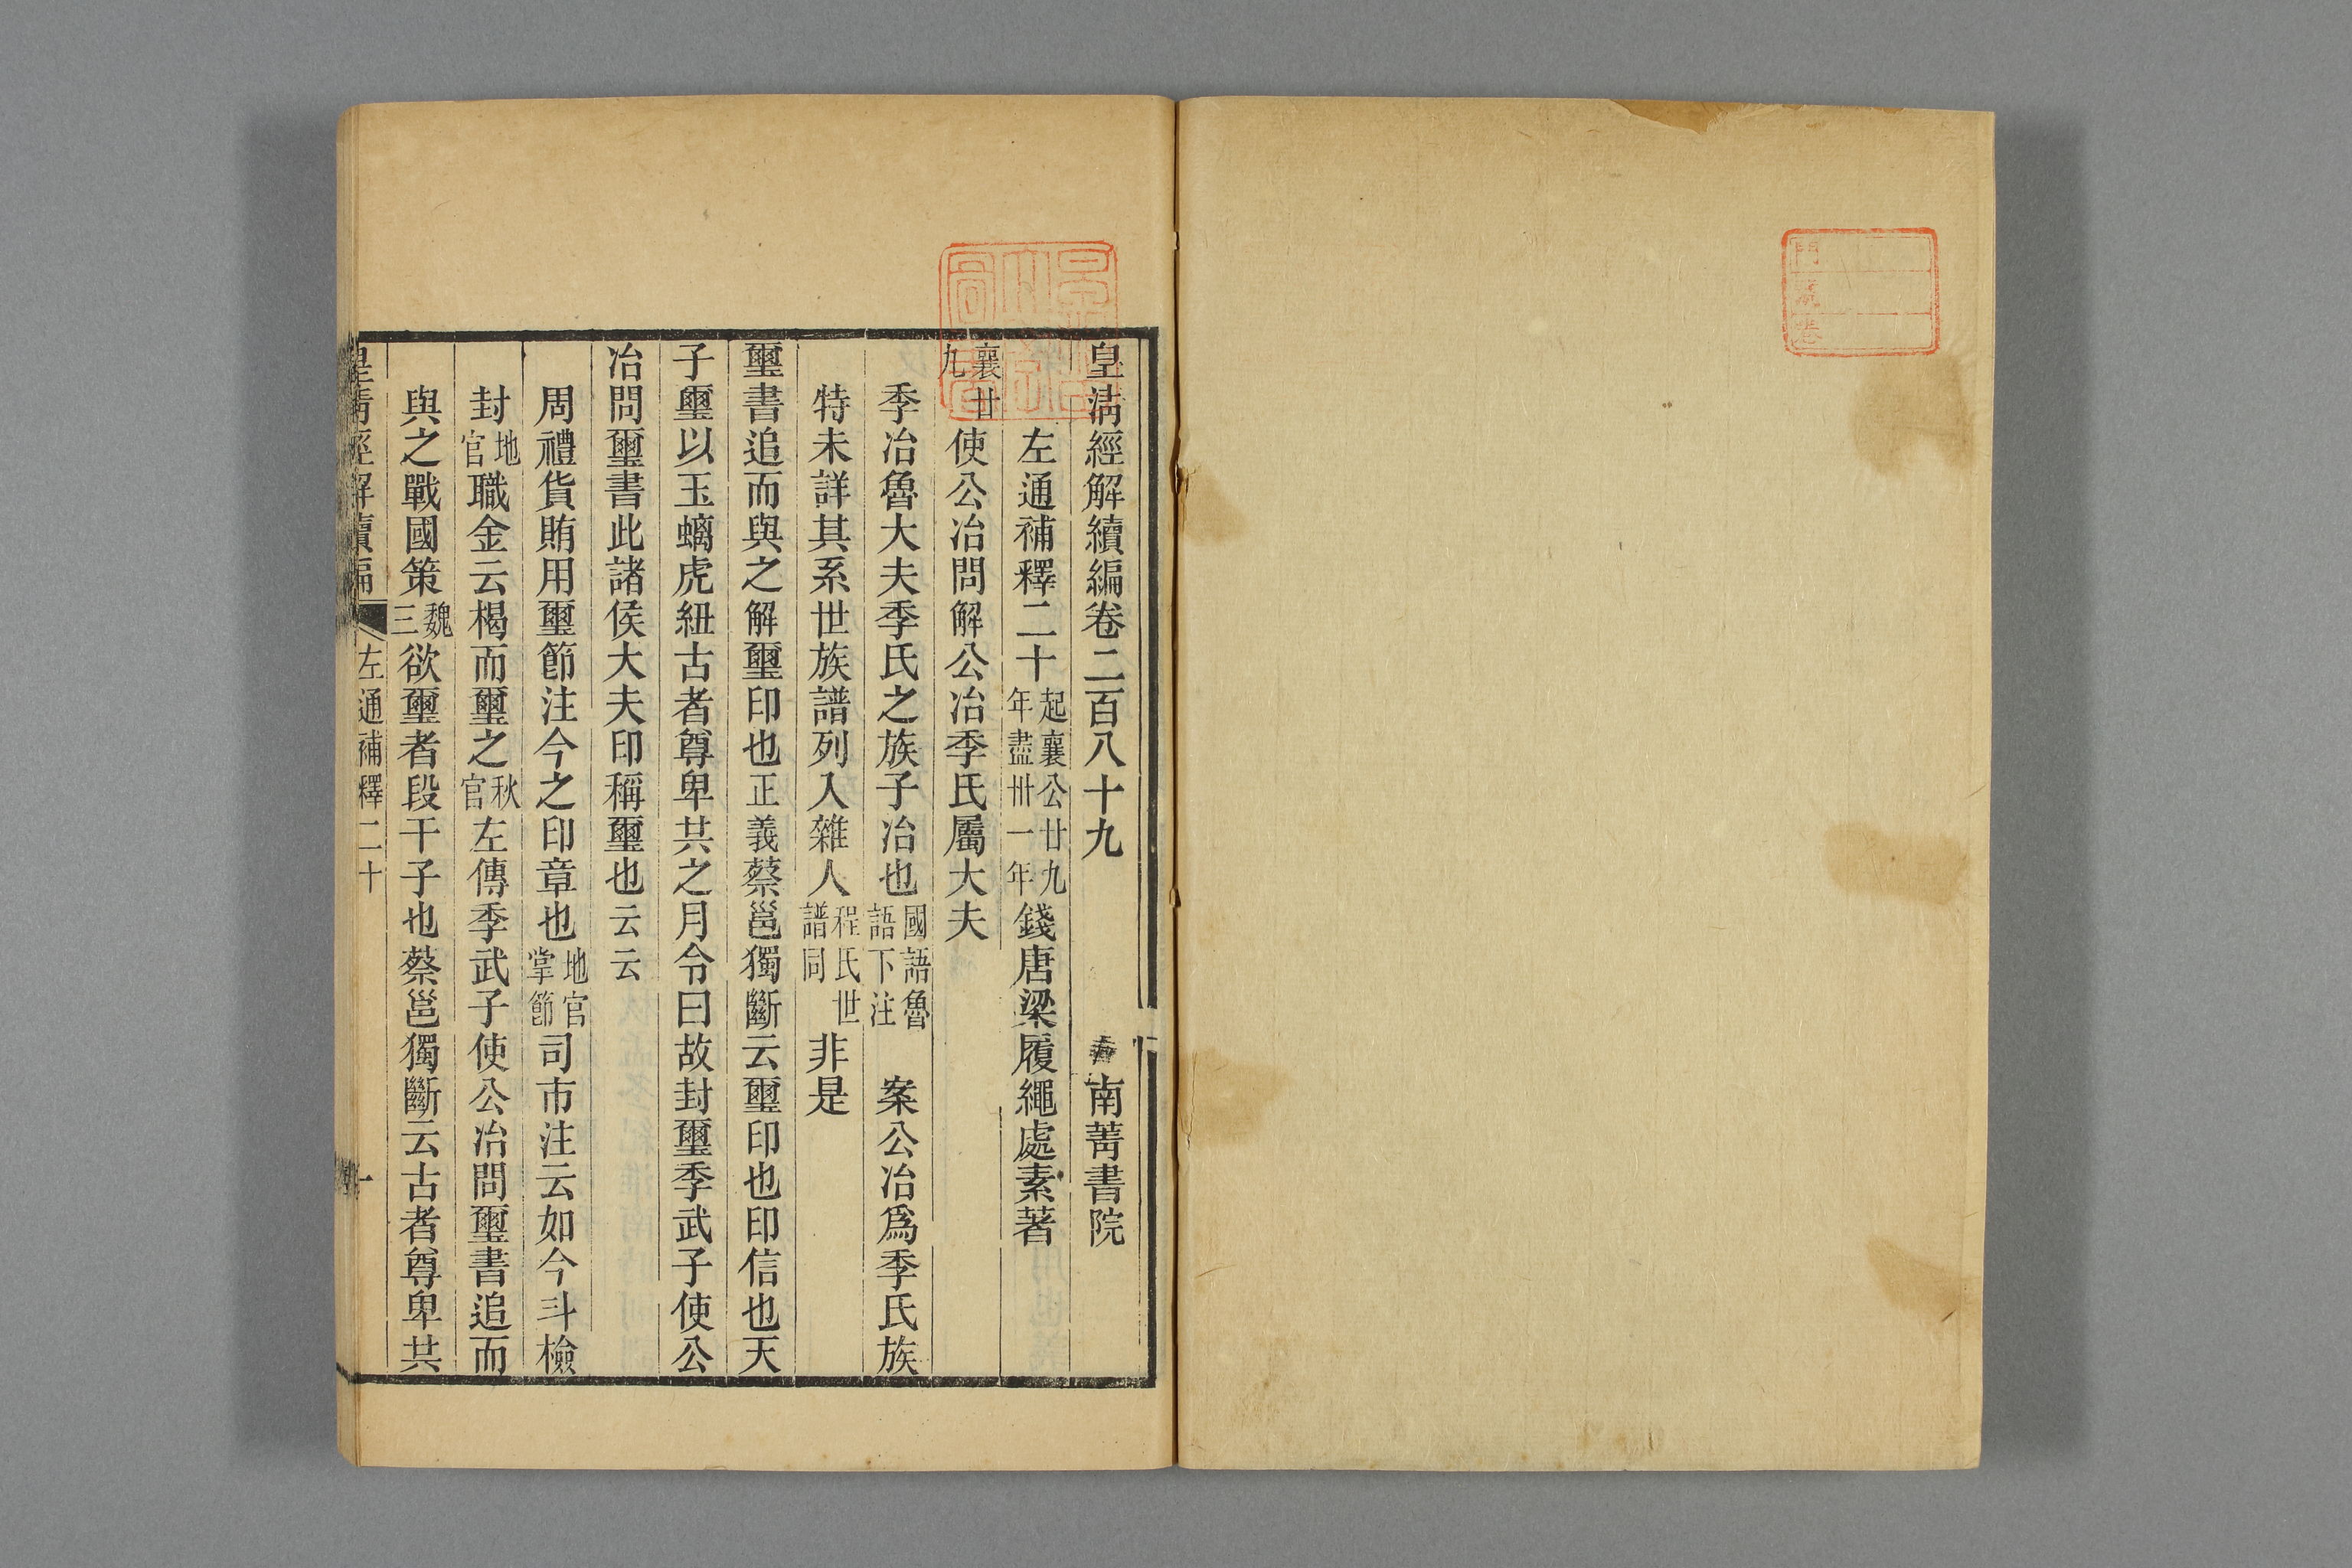 門
號
卷
皇清經解續編卷二百八十九 南菁書院
左通補釋二十 起襄公廿九年盡卅一年 錢唐梁履繩處素著
襄廿九 使公冶問解公冶季氏屬大夫
季冶魯大夫季氏之族子冶也 國語魯語下注 案公冶爲季氏族
特未詳其系世族譜列入雜人 程氏世譜同 非是
璽書追而與之解璽印也正義蔡邕獨斷云璽印也印信也天
子璽以玉螭虎紐古者尊卑共之月令曰故封璽季武子使公
冶問璽書此諸侯大夫印稱璽也云云
周禮貨賄用璽節注今之印章也 地官掌節 司市注云如今斗檢
封 地官 職金云楬而璽之 秋官 左傳季武子使公冶問璽書追而
與之戰國策 魏三 欲璽者段干子也蔡邕獨斷云古者尊卑共
皇清經解續編 左通補釋二十 一